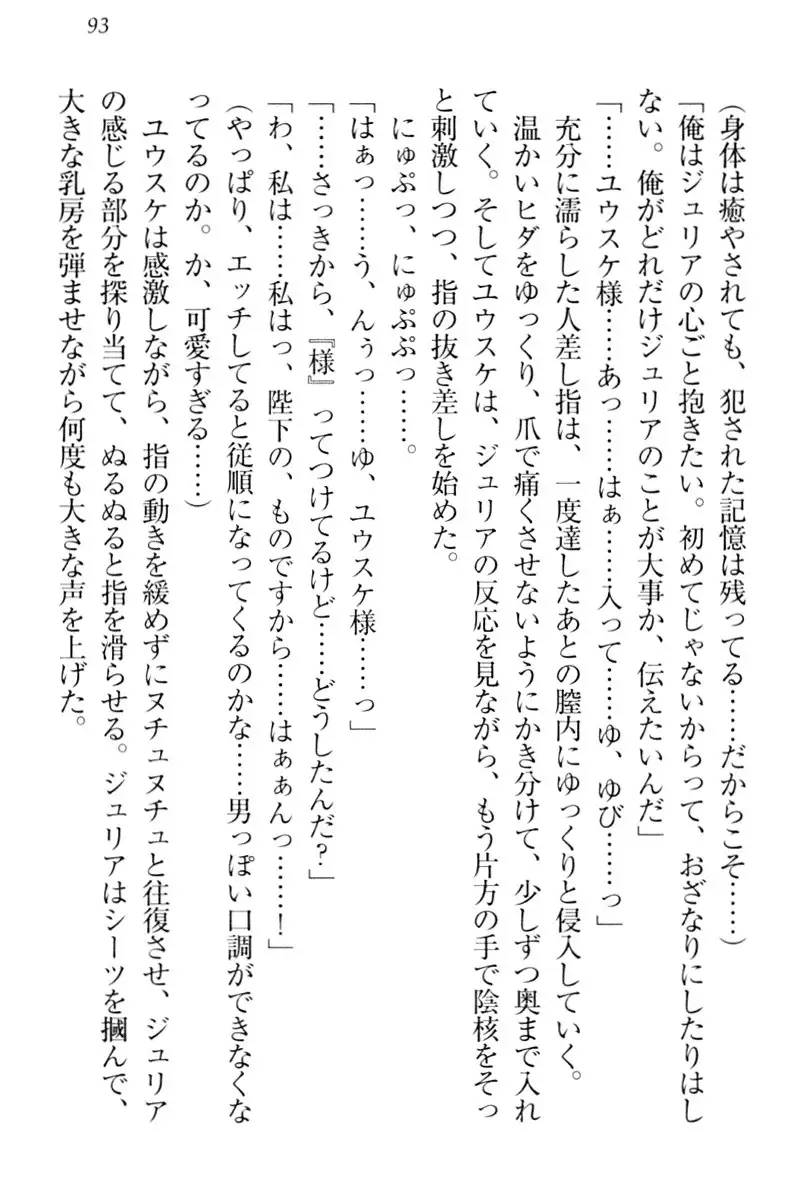 93
(身体は癒やされても、犯された記憶は残ってる……だからこそ……)
「俺はジュリアの心ごと抱きたい。初めてじゃないからって、おざなりにしたりはし
ない。俺がどれだけジュリアのことが大事か、伝えたいんだ」
「……ユウスケ様……あっ……はぁ……入って……ゆ、ゆび……っ」
充分に濡らした人差し指は、一度達したあとの膣内にゆっくりと侵入していく。
温かいヒダをゆっくり、爪で痛くさせないようにかき分けて、少しずつ奥まで入れ
ていく。そしてユウスケは、ジュリアの反応を見ながら、もう片方の手で陰核をそっ
と刺激しつつ、指の抜き差しを始めた。
にゅぷっ、にゅぷぷっ……。
「はぁっ……う、んぅっ……ゆ、ユウスケ様……っ」
「……さっきから、『様』ってつけてるけど……どうしたんだ?」
「わ、私は……私はっ、陛下の、ものですから……はぁぁんっ……!」
(やっぱり、エッチしてると従順になってくるのかな……男っぽい口調ができなくな
ってるのか。か、可愛すぎる……)
ユウスケは感激しながら、指の動きを緩めずにヌチュヌチュと往復させ、ジュリア
の感じる部分を探り当てて、ぬるぬると指を滑らせる。ジュリアはシーツを摑んで、
大きな乳房を弾ませながら何度も大きな声を上げた。